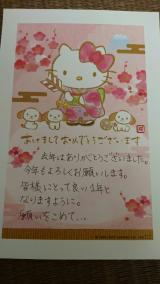 あけましておめでとうございます
去年はありがとうございました。
今年もよろしくお願いします。
皆様にとって良い1年と
なりますように。
願いをこめて…